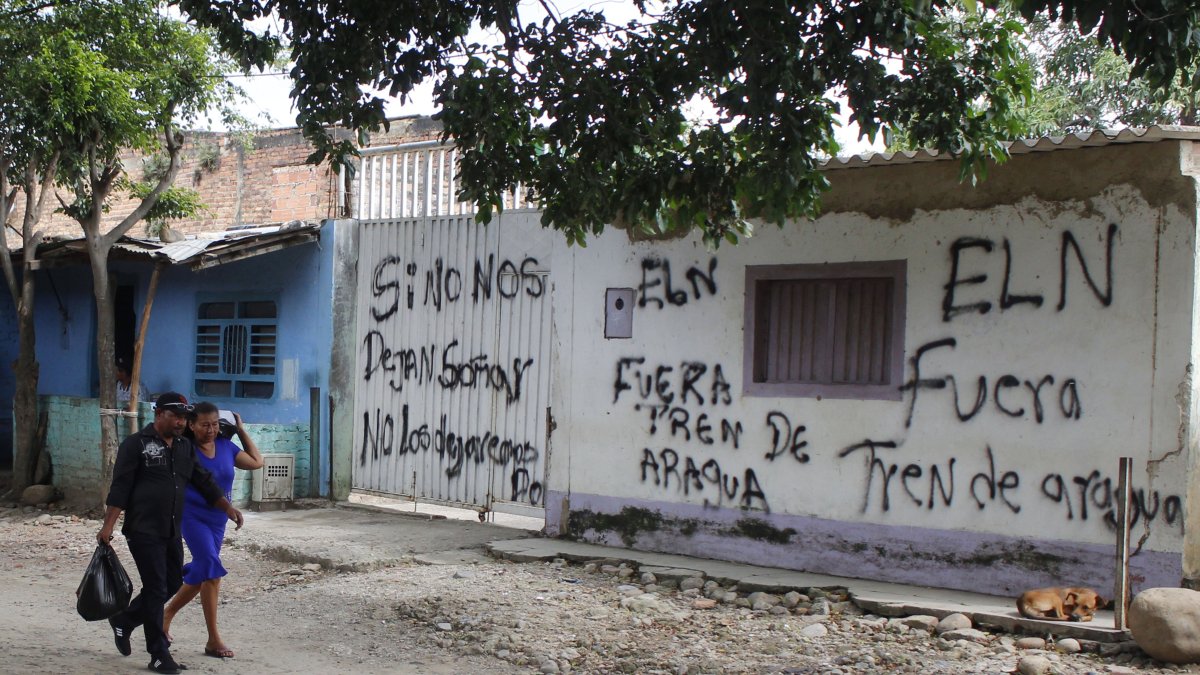 Si NO NOS
Dejan Soñar
NO Los dejaremos
Do
ELN
FUERA
TREN DE
ARAGUA
ELN
Fuera
Tren de aragua